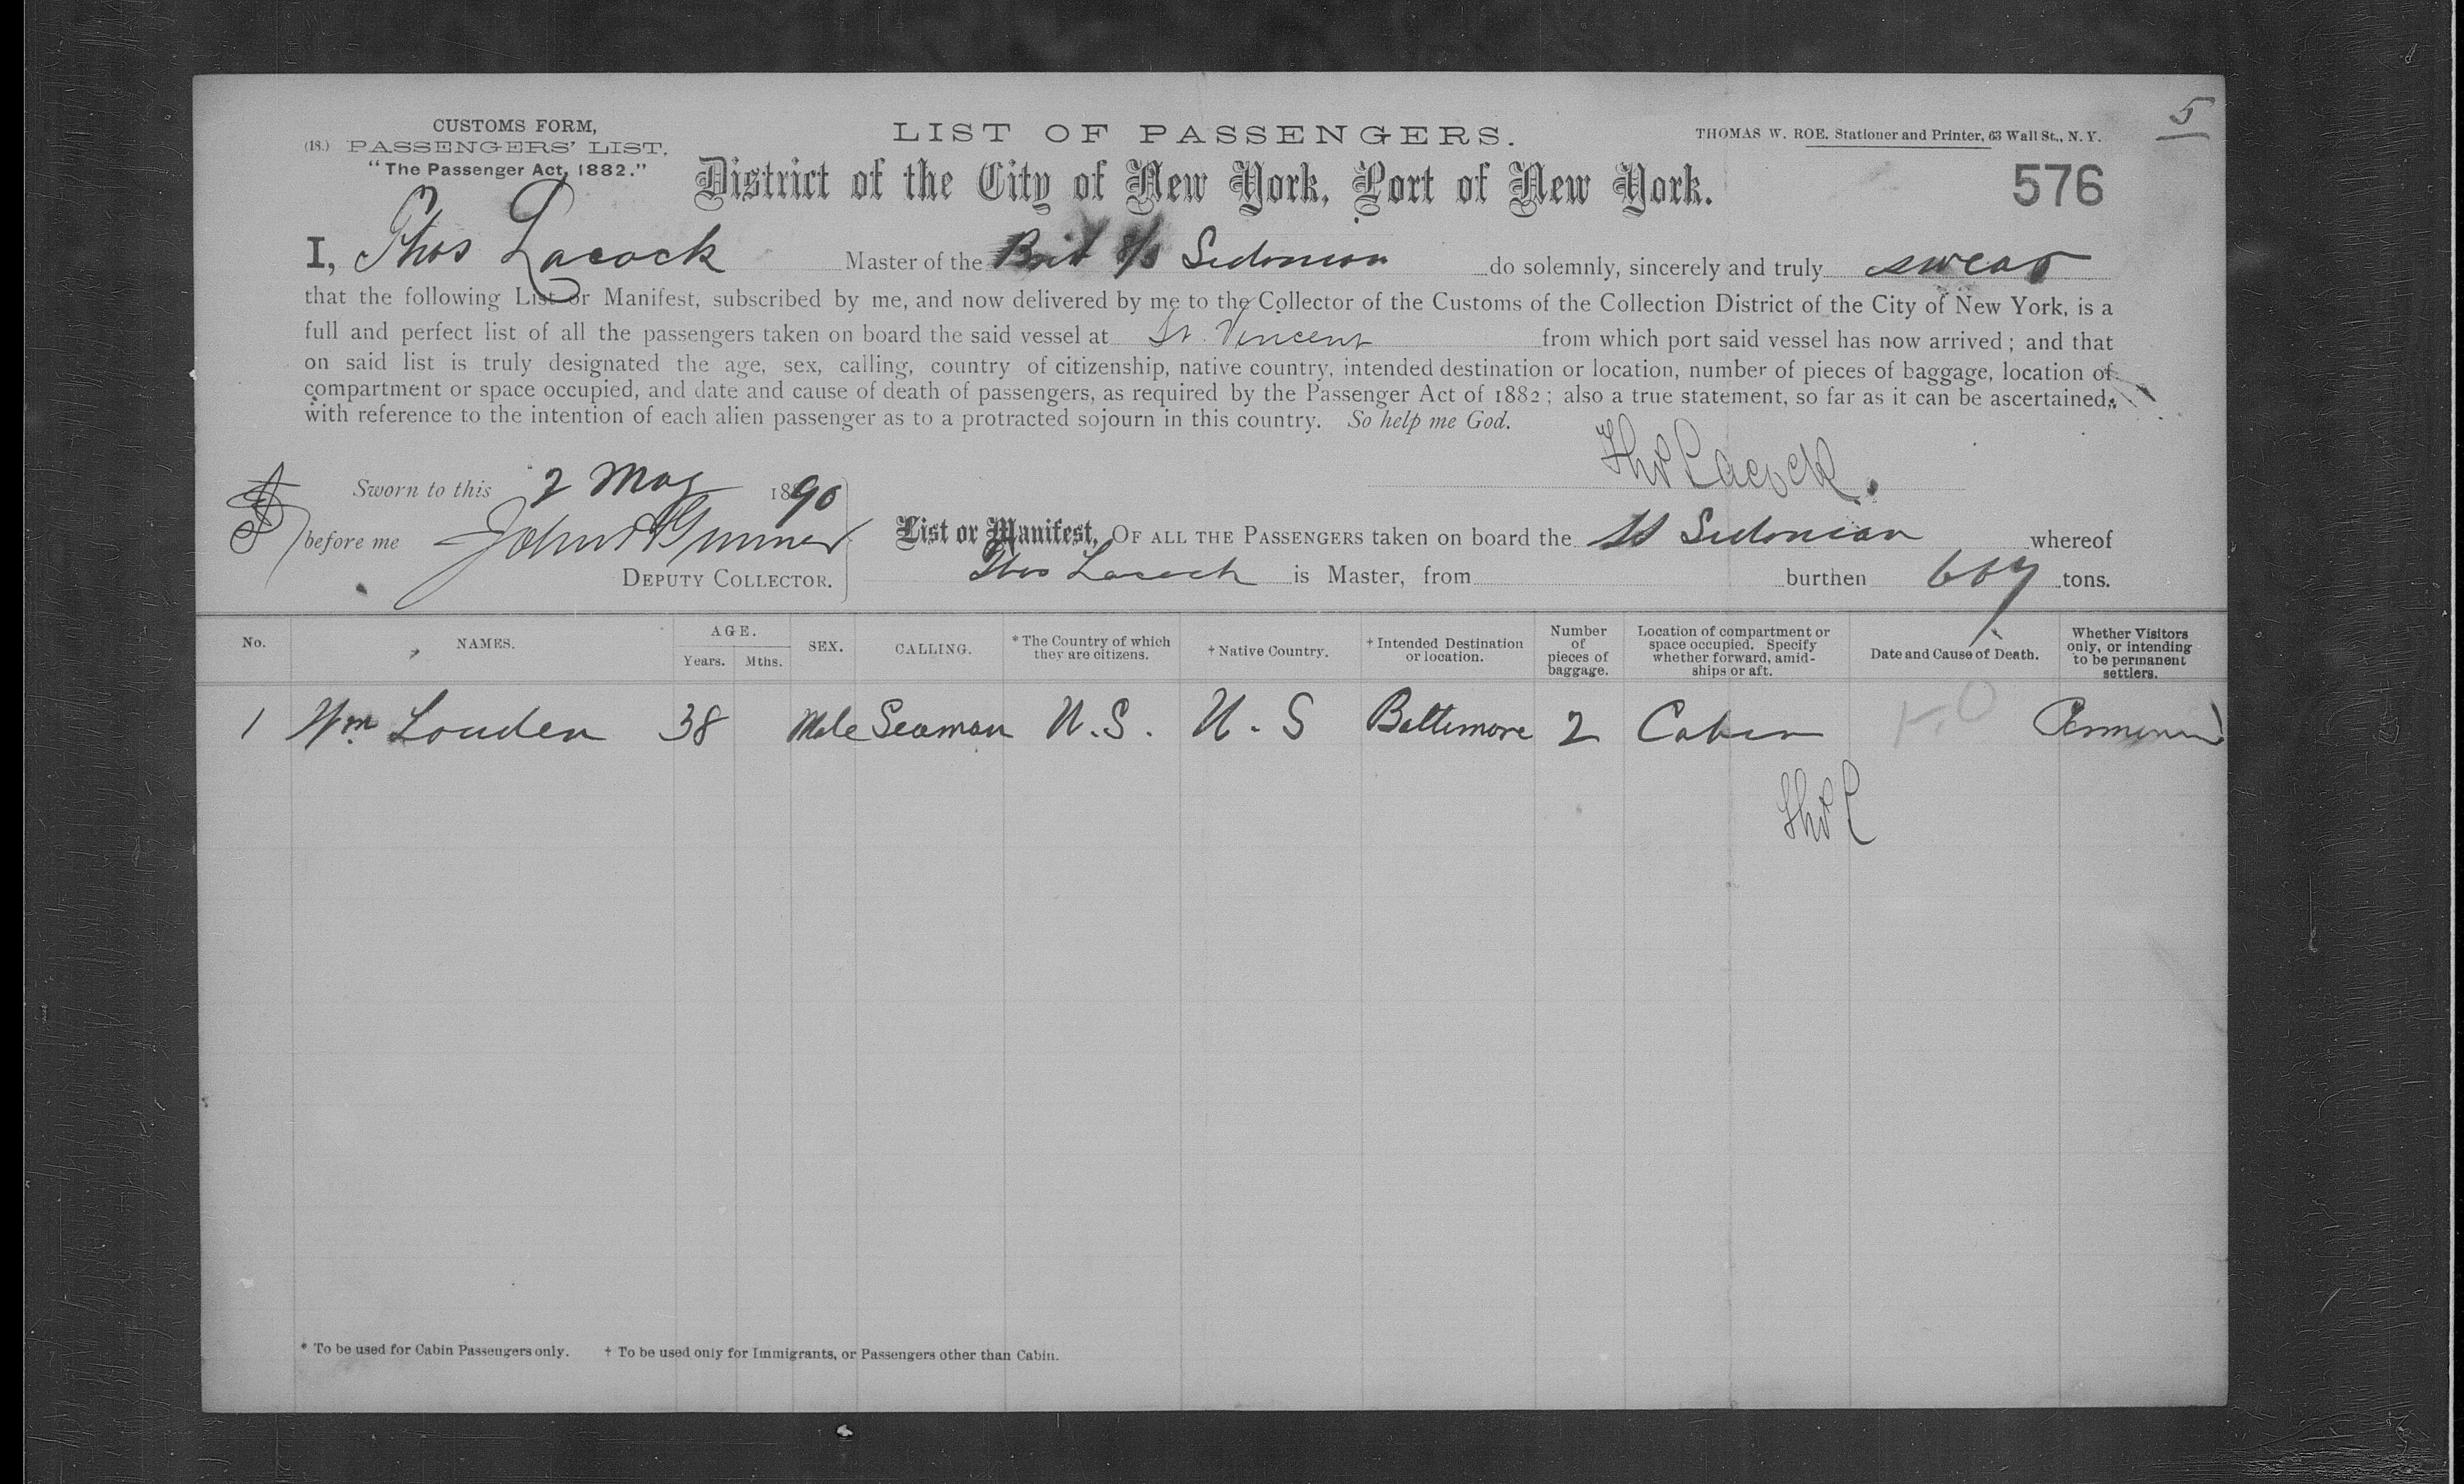 5
CUSTOMS FORM,
(18.) PASSENGERS' LIST.
"The Passenger Act, 1882."
LIST OF PASSENGERS.
THOMAS W. ROE. Stationer and Printer, 63 Wall St., N. Y.
District of the City of New York, Port of New York.
576
I, Thos Lacock Master of the Brit S/S Sidonian do solemnly, sincerely and truly swear
that the following List or Manifest, subscribed by me, and now delivered by me to the Collector of the Customs of the Collection District of the City of New York, is a
full and perfect list of all the passengers taken on board the said vessel at St. Vincent from which port said vessel has now arrived; and that
on said list is truly designated the age, sex, calling, country of citizenship, native country, intended destination or location, number of pieces of baggage, location of
compartment or space occupied, and date and cause of death of passengers, as required by the Passenger Act of 1882; also a true statement, so far as it can be ascertained,
with reference to the intention of each alien passenger as to a protracted sojourn in this country. So help me God.
Thos Lacock.
Sworn to this 2 May 1890
before me John
DEPUTY COLLECTOR.
List or Manifest, OF ALL THE PASSENGERS taken on board the SS Sidonian whereof
Thos Lacock is Master, from burthen tons.
No. NAMES. AGE. Years. Mths. SEX. CALLING. * The Country of which they are citizens. † Native Country. † Intended Destination or location. Number of pieces of baggage. Location of compartment or space occupied. Specify whether forward, amidships or aft. Date and Cause of Death. Whether Visitors only, or intending to be permanent settlers.
1 Wm Louden 38 Male Seaman U.S. U.S Baltimore 2 Cabin
Thos L
* To be used for Cabin Passengers only. † To be used only for Immigrants, or Passengers other than Cabin.